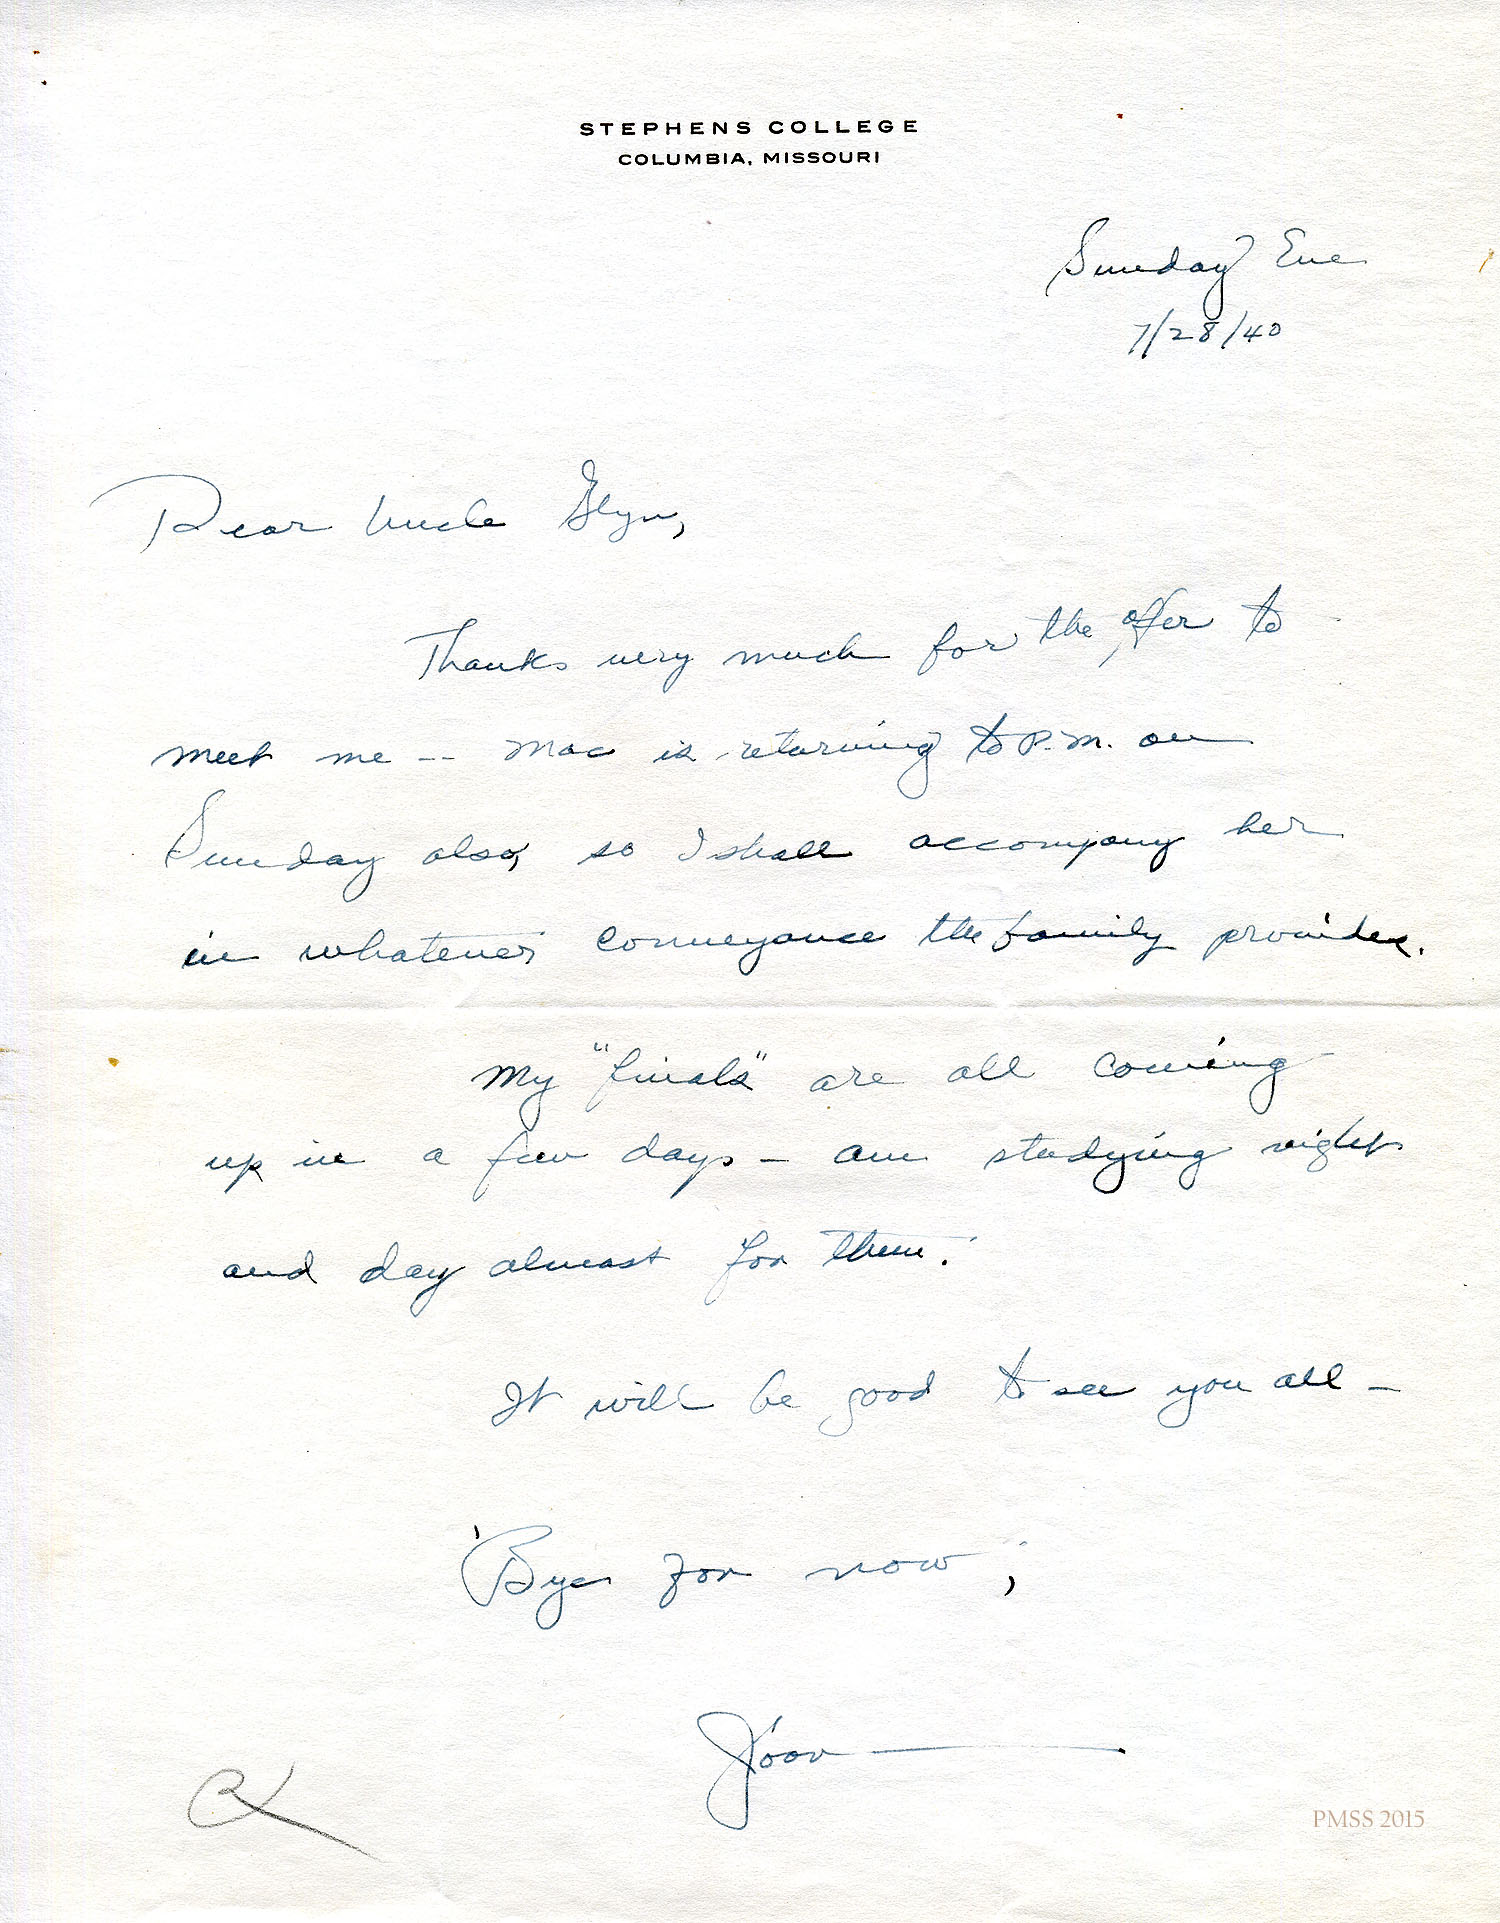 STEPHENS COLLEGE
COLUMBIA, MISSOURI
Sunday Eve
7/28/40
Dear Uncle Glyn,
Thanks very much for the offer to
meet me -- Mac is returning to P.M. on
Sunday also, so I shall accompany her
in whatever conveyance the family provides.
My "finals" are all coming
up in a few days - am studying night
and day almost for them.
It will be good to see you all -
'Bye for now,
PMSS 2015